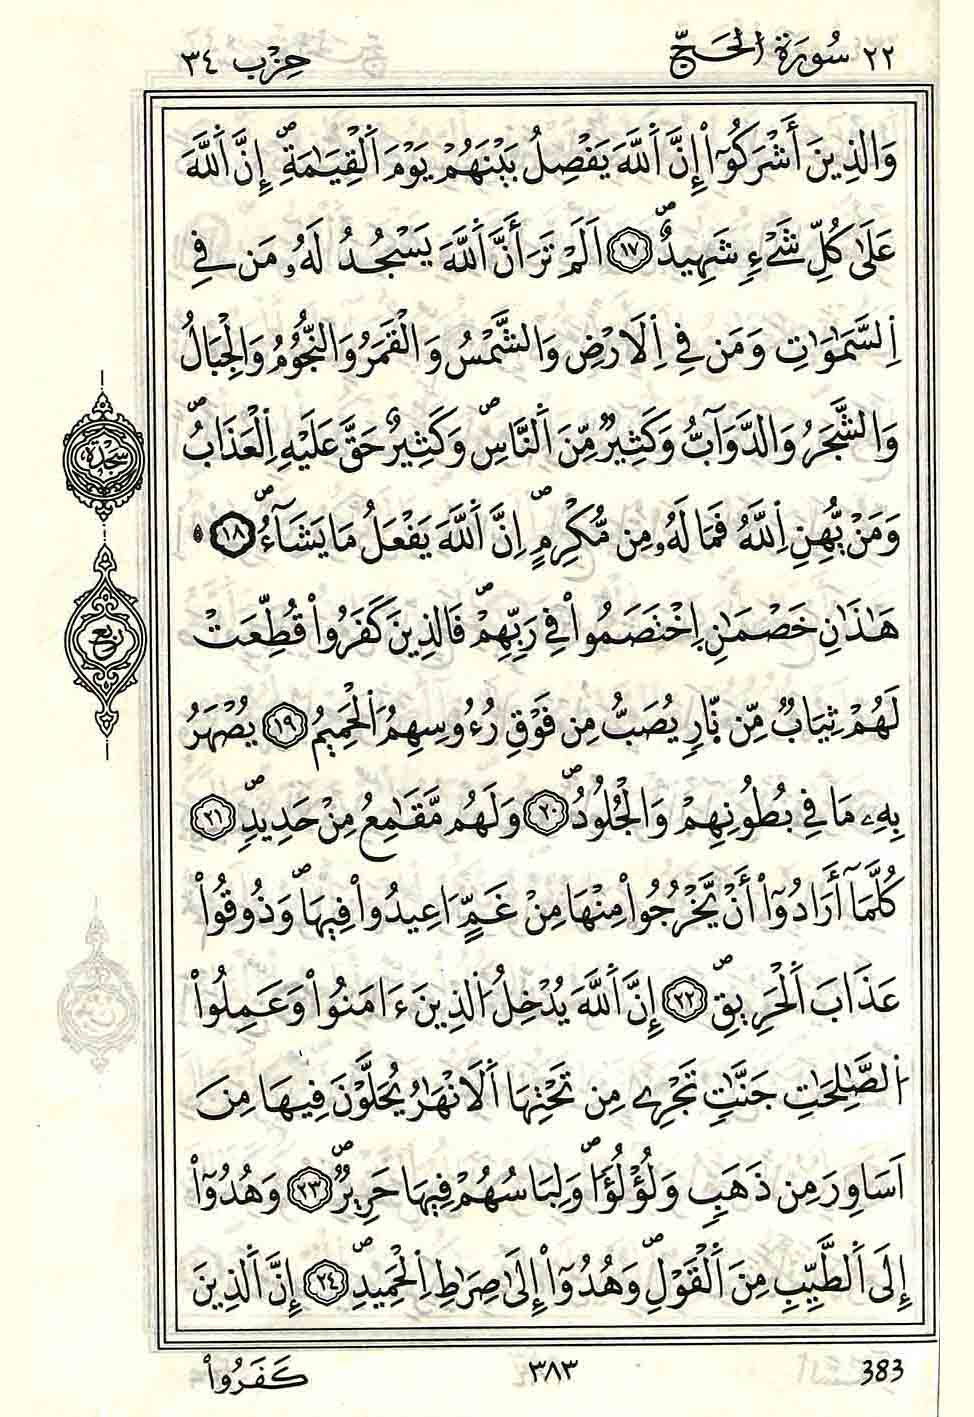 ٢٢ سُورَةُ الْحَجِّ حِزْب ٣٤
وَالذِينَ أَشْرَكُوٓاْ إِنَّ اَ۬للَّهَ يَفْصِلُ بَيْنَهُمْ يَوْمَ اَ۬لْقِيَٰمَةِۖ إِنَّ اَ۬للَّهَ
عَلَىٰ كُلِّ شَےْءٖ شَهِيدٌۖ ١٧ اَلَمْ تَرَ أَنَّ اَ۬للَّهَ يَسْجُدُ لَهُۥ مَن فِے
اِ۬لسَّمَٰوَٰتِ وَمَن فِے اِ۬لَارْضِ وَالشَّمْسُ وَالْقَمَرُ وَالنُّجُومُ وَالْجِبَالُ
وَالشَّجَرُ وَالدَّوَآبُّ وَكَثِيرٞ مِّنَ اَ۬لنَّاسِۖ وَكَثِيرٌ حَقَّ عَلَيْهِ اِ۬لْعَذَابُۖ
وَمَنْ يُّهِنِ اِ۬للَّهُ فَمَا لَهُۥ مِن مُّكْرِمٍۖ اِنَّ اَ۬للَّهَ يَفْعَلُ مَا يَشَآءُۖ ١٨
هَٰذَٰنِ خَصْمَٰنِ اِ۪خْتَصَمُواْ فِے رَبِّهِمْۖ فَالذِينَ كَفَرُواْ قُطِّعَتْ
لَهُمْ ثِيَابٞ مِّن نّ۪ارٖ يُصَبُّ مِن فَوْقِ رُءُوسِهِمُ اُ۬لْحَمِيمُ ١٩ يُصْهَرُ
بِهِۦ مَا فِے بُطُونِهِمْ وَالْجُلُودُۖ ٢٠ وَلَهُم مَّقَٰمِعُ مِنْ حَدِيدٖۖ ٢١
كُلَّمَآ أَرَادُوٓاْ أَنْ يَّخْرُجُواْ مِنْهَا مِنْ غَمٍّ ا۟عِيدُواْ فِيهَاۖ وَذُوقُواْ
عَذَابَ اَ۬لْحَرِيقِۖ ٢٢ إِنَّ اَ۬للَّهَ يُدْخِلُ اُ۬لذِينَ ءَامَنُواْ وَعَمِلُواْ
اُ۬لصَّٰلِحَٰتِ جَنَّٰتٖ تَجْرِے مِن تَحْتِهَا اَ۬لَانْهَٰرُ يُحَلَّوْنَ فِيهَا مِنَ
اَسَاوِرَ مِن ذَهَبٖ وَلُؤْلُؤاٗۖ وَلِبَاسُهُمْ فِيهَا حَرِيرٞۖ ٢٣ وَهُدُوٓاْ
إِلَى اَ۬لطَّيِّبِ مِنَ اَ۬لْقَوْلِۖ وَهُدُوٓاْ إِلَىٰ صِرَٰطِ اِ۬لْحَمِيدِۖ ٢٤ إِنَّ اَ۬لذِينَ
سجدة
ربع
383 ٣٨٣ كَفَرُواْ